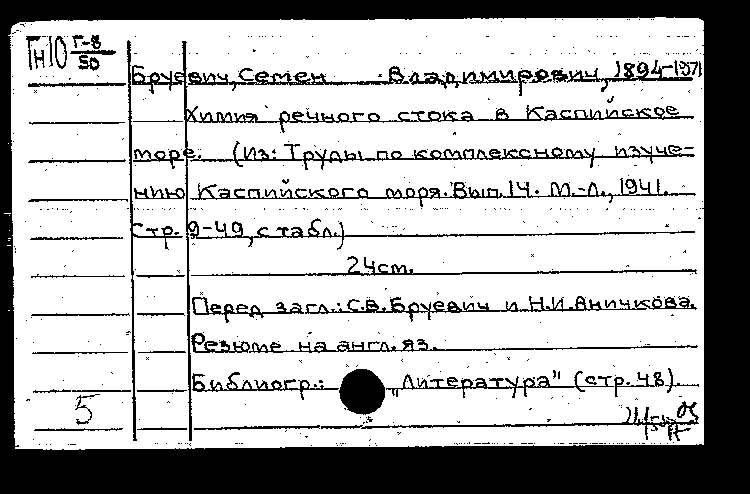 Гн10 Г-8/50
Бруевич, Семен Владимирович, 1894-1971
Химия речного стока в Каспийское
море. (Из: Труды по комплексному изуче=
нию Каспийского моря. Вып. 14. М.-Л., 1941.
Стр. 9-49, с табл.)
24см.
Перед загл.: С.В. Бруевич и Н.И. Аничкова.
Резюме на англ. яз.
Библиогр.: „Литература" (стр. 48).
5